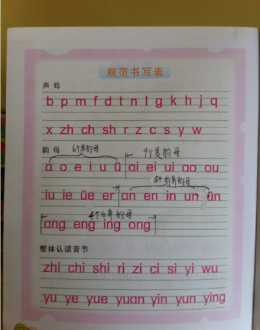 规范书写表
声 母
b p m f d t n l g k h j q
x zh ch sh r z c s y w
韵 母
6个单韵母
a o e i u ü ai ei ui ao ou
iu ie üe er an en in un ün
ang eng ing ong
整体认读音节
zhi chi shi ri zi ci si yi wu
yu ye yue yuan yin yun ying